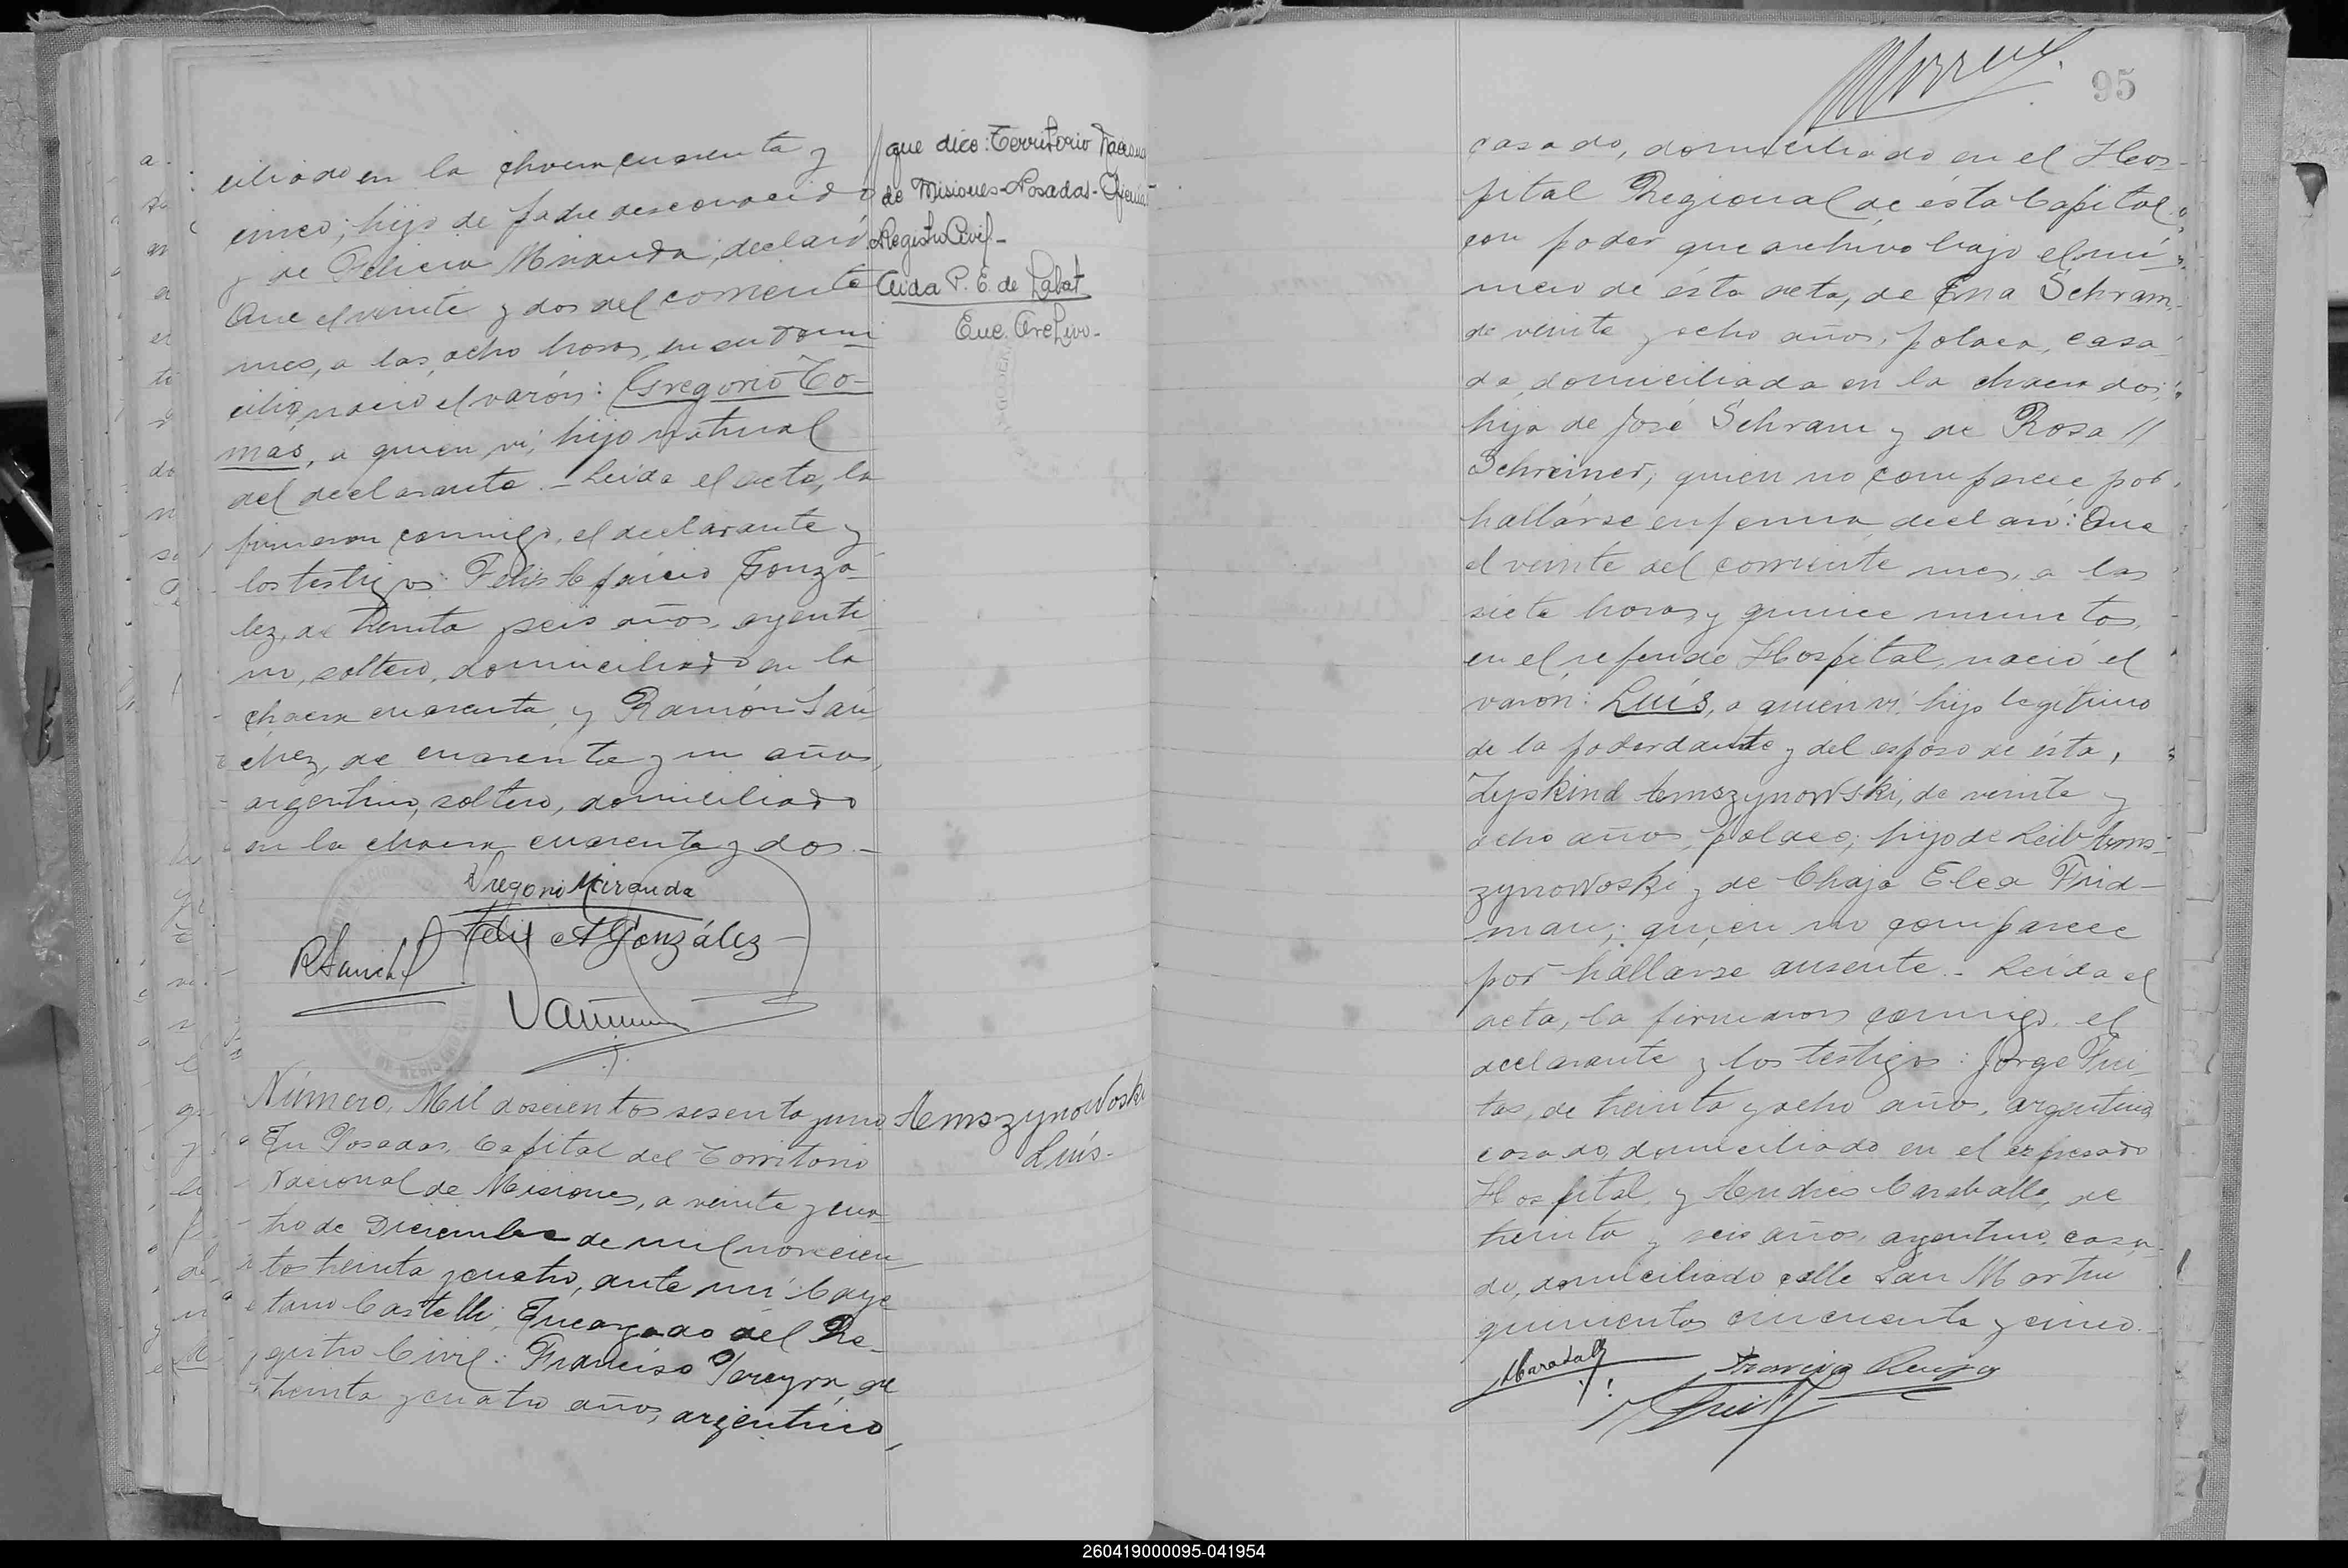 ciliado en la chacra cuarenta y
cinco; hijo de padre desconocido
y de Felicia Miranda, declaró:
Que el veinte y dos del corriente
mes, a las ocho horas, en su domi
cilio, nació el varón: Gregorio To-
más, a quien ví, hijo natural
del declarante.- Leida el acta, la
firmaron conmigo, el declarante y
los testigos: Felis Gonza-
lez, de treinta y seis años, argenti
no, soltero, domiciliado en la
chacra cuarenta, y Ramón Sán
chez, de cuarenta y un años,
argentino, soltero, domiciliado
en la chacra cuarenta y dos.-
Gregorio Miranda
Felix A González
R Sanchez
Número, Mil doscientos sesenta y uno
En Posadas, Capital del Territorio
Nacional de Misiones, a veinte y cua
tro de Diciembre de mil novecien
tos treinta y cuatro, ante mí Caye
tano Castelli, Encargado del Re-
gistro Civil: Francisco Pereyra, de
treinta y cuatro años, argentino,
que dice: Territorio Naciona
de Misiones-Posadas-
Registro Civil-
Aida P. E. de Labat
Enc. Archivo-
Amszynowoski
Luís-
95
casado, domiciliado en el Hos-
pital Regional de ésta Capital,
con poder que archivo bajo el nú-
mero de ésta acta, de Ena Schram,
de veinte y ocho años, polaca, casa
da, domiciliada en la chacra dos;
hija de José Schram y de Rosa //
Schreiner, quien no comparece por
hallarse enferma, declaró: Que
el veinte del corriente mes, a las
siete horas y quince minutos,
en el referido Hospital, nació el
varón: Luís, a quien ví, hijo legítimo
de la poderdante y del esposo de ésta,
Zyskind Amszynowski, de veinte y
ocho años, polaco; hijo de Leib Ams-
zynowoski y de Chaja Elca Frid-
man; quien no comparece
por hallarse ausente.- Leída el
acta, la firmaron conmigo, el
declarante y los testigos: Jorge Frei
tas, de treinta y ocho años, argentino
casado, domiciliado en el expresado
Hospital, y Andres Caraballo, de
treinta y seis años, argentino, casa
do, domiciliado calle San Martin
quinientos cincuenta y cinco.-
260419000095-041954